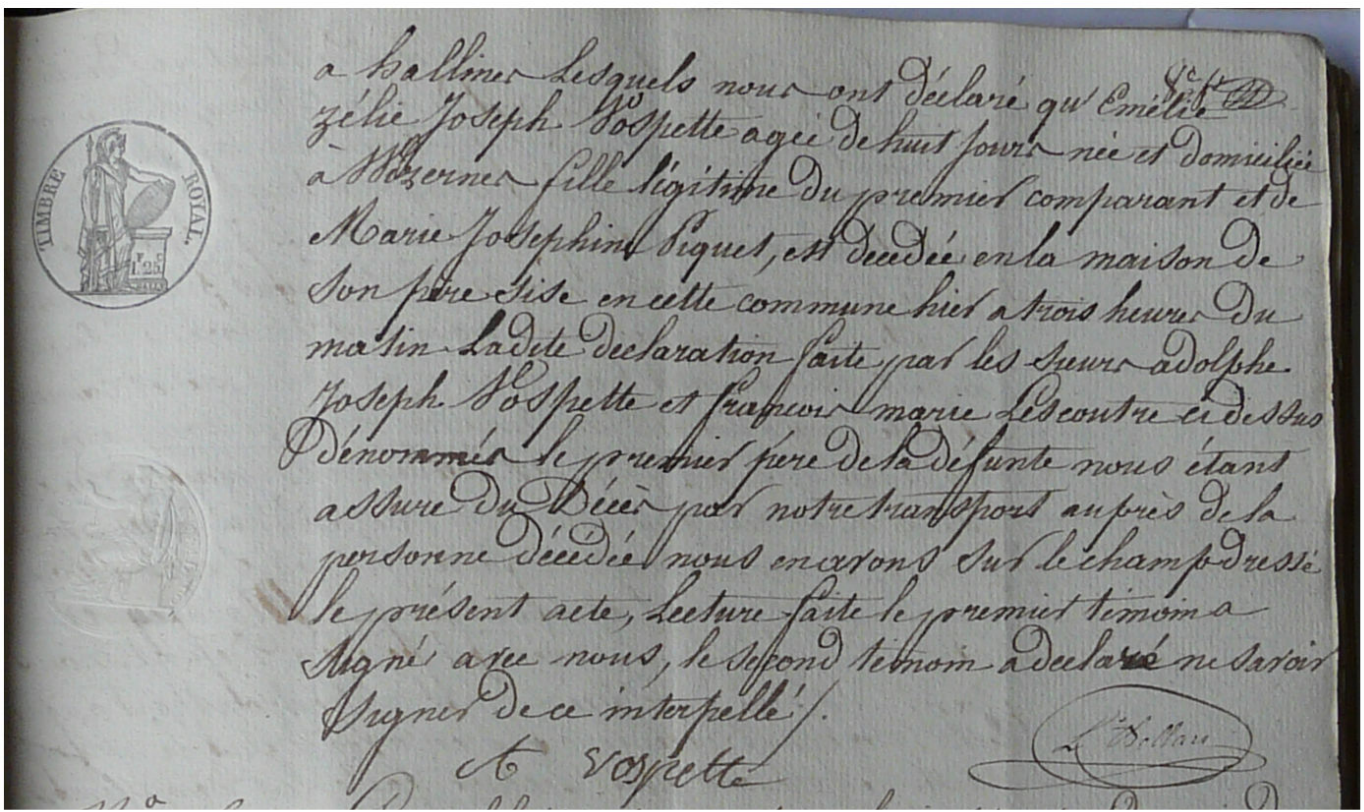 TIMBRE ROYAL.
1F. 25C
a hallines Lesquels nous ont déclaré qu'Emélie
zélie Joseph Vospette agée de huit jours née et domiciliée
à Wizernes fille légitime du premier comparant et de
Marie Josephine Piquet, est decedée en la maison de
son père sise en cette commune hier a trois heures du
matin Ladite declaration faite par les sieurs adolphe
Joseph Vospette et françois marie Lescoutre ci dessus
Dénommés le premier père de la défunte nous étant
assure du Décès par notre transport auprès de la
personne décedée nous en avons sur le champ dressé
le présent acte, Lecture faite le premier témoin a
signé avec nous, le second temoin a declaré ne savoir
signer de ce interpellé /.
A Vospette